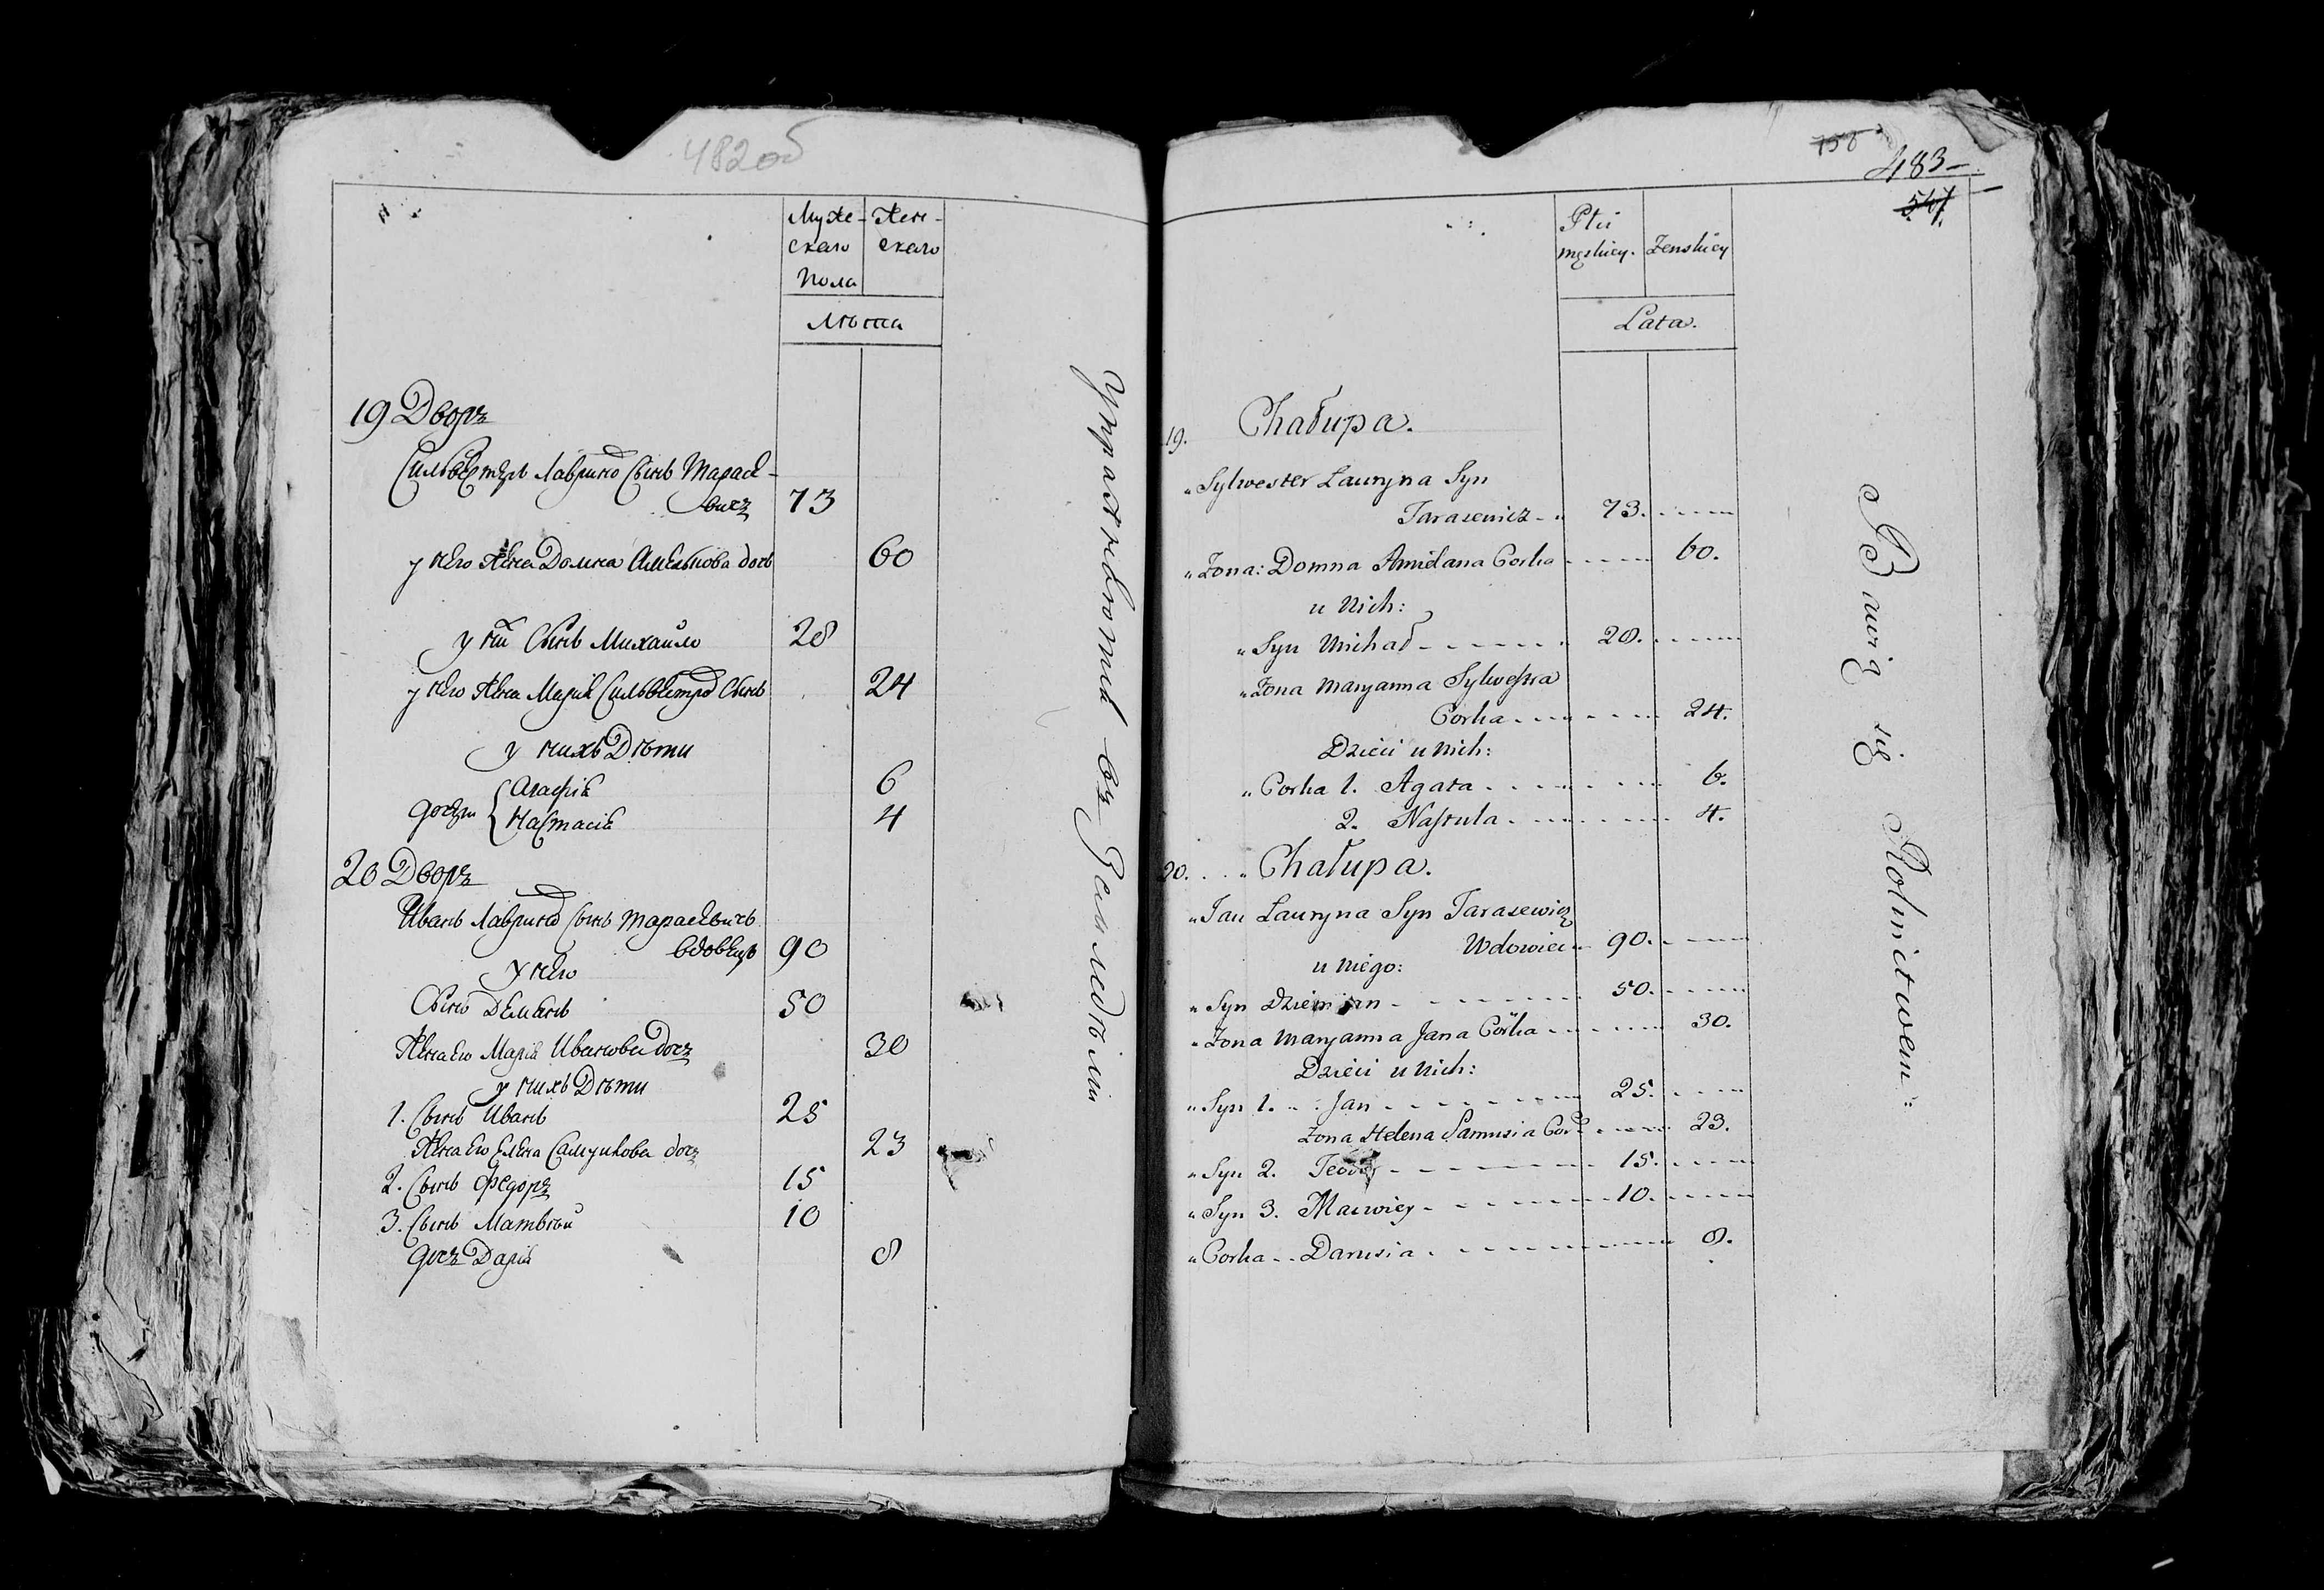 482об
Муже-
скаго
пола
Жен-
скаго
Лѣта
19 Дворъ
Сильвестеръ Лаврыновъ Сынъ Тарасе-
вичъ 73
у него жена Домна Амельянова дочь 60
у них Сынъ Михайло 28
у него жена Марія 24
у нихъ Дѣти
дочери { Агафія 6
Настасія 4
20 Дворъ
Иванъ Лаврыновъ Сынъ Тарасевичъ
вдовецъ 90
У него
Сынъ Демьянъ 50
Жена его Марія Иванова дочъ 30
у нихъ Дѣти
1. Сынъ Иванъ 25
Жена его Елена дочъ 23
2. Сынъ Федоръ 15
3. Сынъ Матвѣй 10
дочъ Дарія 8
Упражняются въ Земледѣліи
483
Płci
męskiey. Żenskiey
Lata.
19. Chałupa.
„ Sylwester Lauryna Syn
Tarasewicz 73.
„ Zona: Domna Corka 60.
u Nich:
„ Syn Michał 28.
„ Zona Maryanna Sylwestra
Corka 24.
Dzieci u Nich:
„ Corka 1. Agata 6.
2. Nastula 4.
20. „ Chałupa.
„ Jan Lauryna Syn Tarasewicz
Wdowiec 90.
u Niego:
„ Syn Dziemjan 50.
„ Zona Maryanna Jana Córka 30.
Dzieci u Nich:
„ Syn 1. Jan 25.
Zona Helena Samusia Cor 23.
„ Syn 2. Teodor 15.
„ Syn 3. Maciey 10.
„ Corka Darusia 8.
Bawią się Rolnictwem